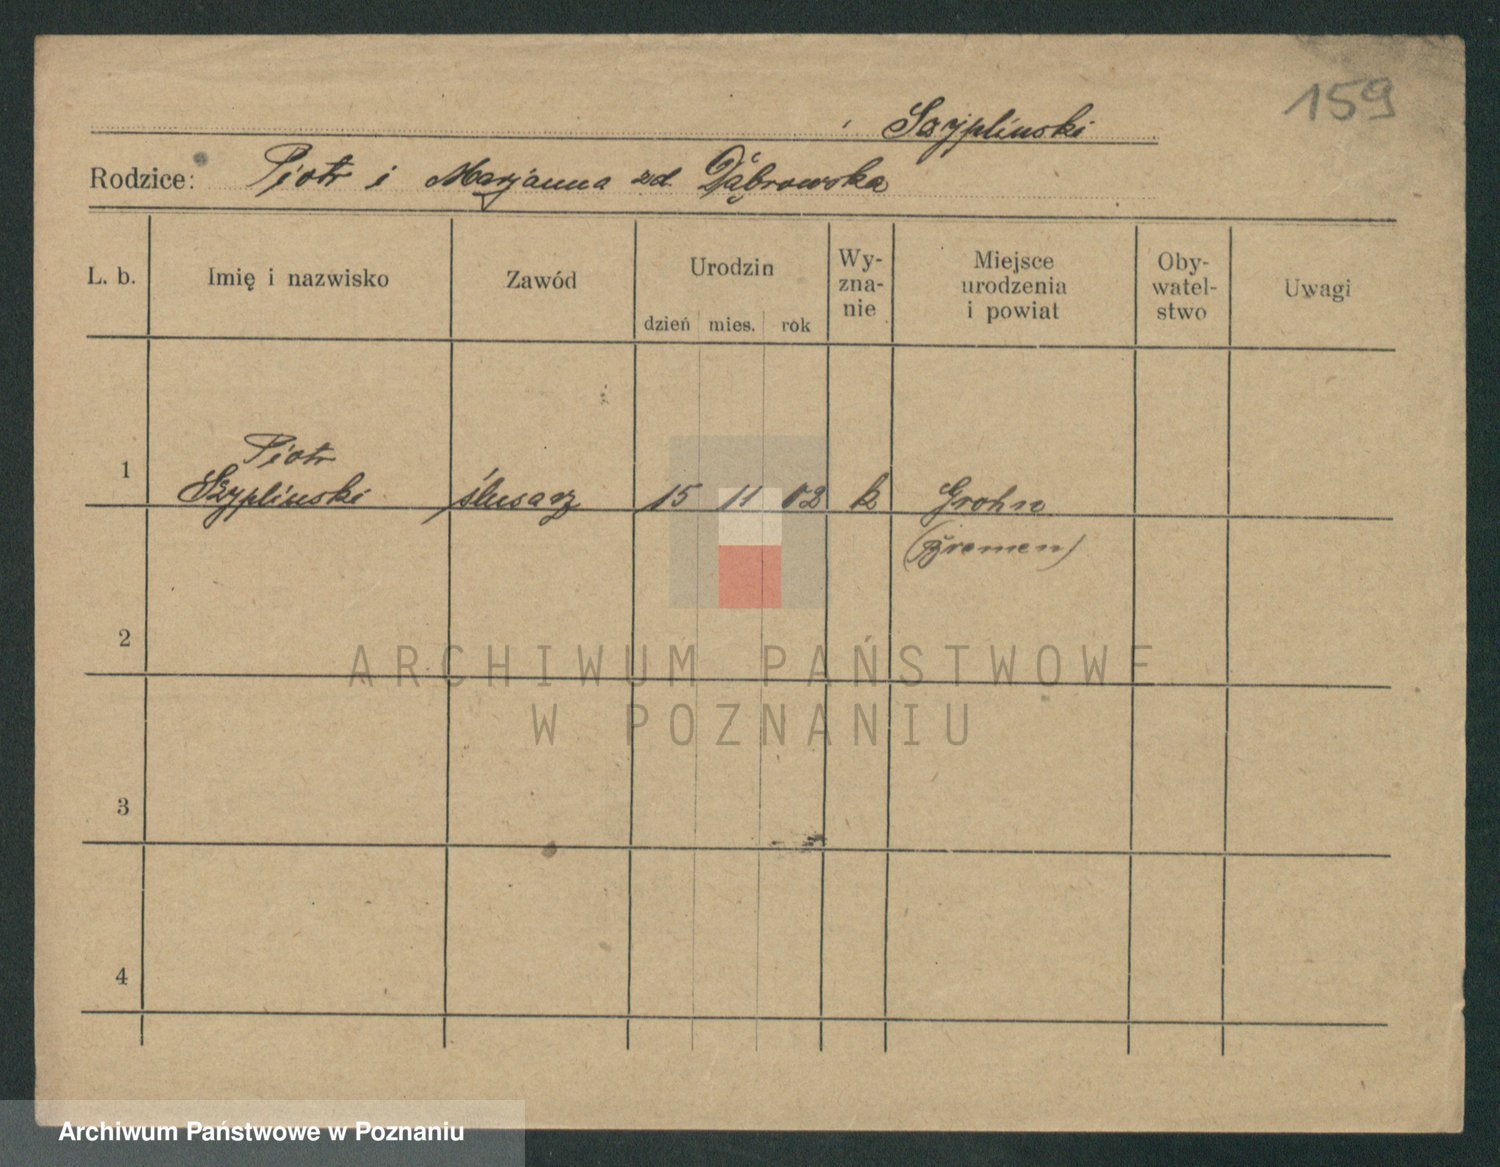 159
Szyplinski
Rodzice: Piotr i Marjanna zd. Dąbrowska
L. b. Imię i nazwisko Zawód Urodzin dzień mies. rok Wy-znanie Miejsce urodzenia i powiat Oby-watel-stwo Uwagi
1 Piotr
Szyplinski ślusarz 15 11 02 k Grohn
(Bremen)
2
ARCHIWUM PAŃSTWOWE
W POZNANIU
3
4
Archiwum Państwowe w Poznaniu